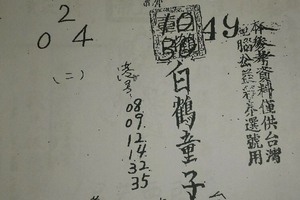 2
0 4
49
(二)
白鶴童子
港号
08
09.
12
14
32
35
參考資料僅供台灣
電腦公益彩券選號用